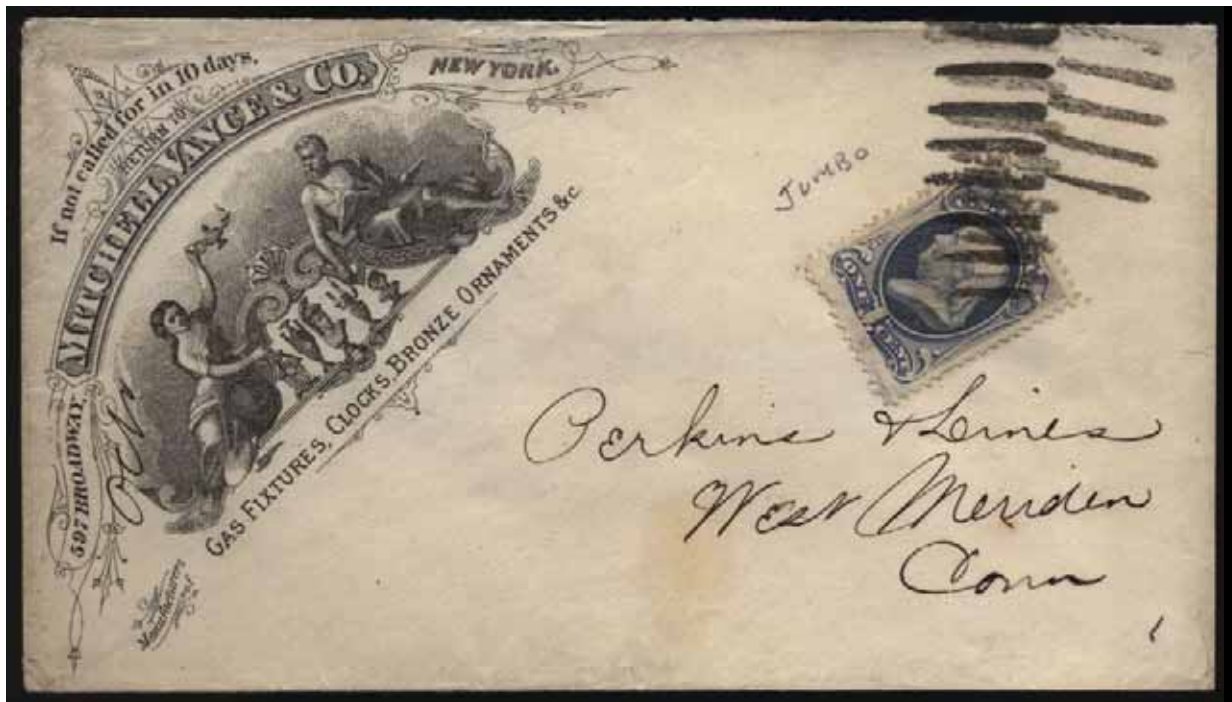 If not called for in 10 days,
RETURN TO
MITCHELL, VANCE & CO.
NEW YORK.
597 BROADWAY,
GAS FIXTURES, CLOCKS, BRONZE ORNAMENTS &c
Manufacturers
JUMBO
ONE 1 CENT
Perkins & Lines
West Meriden
Conn